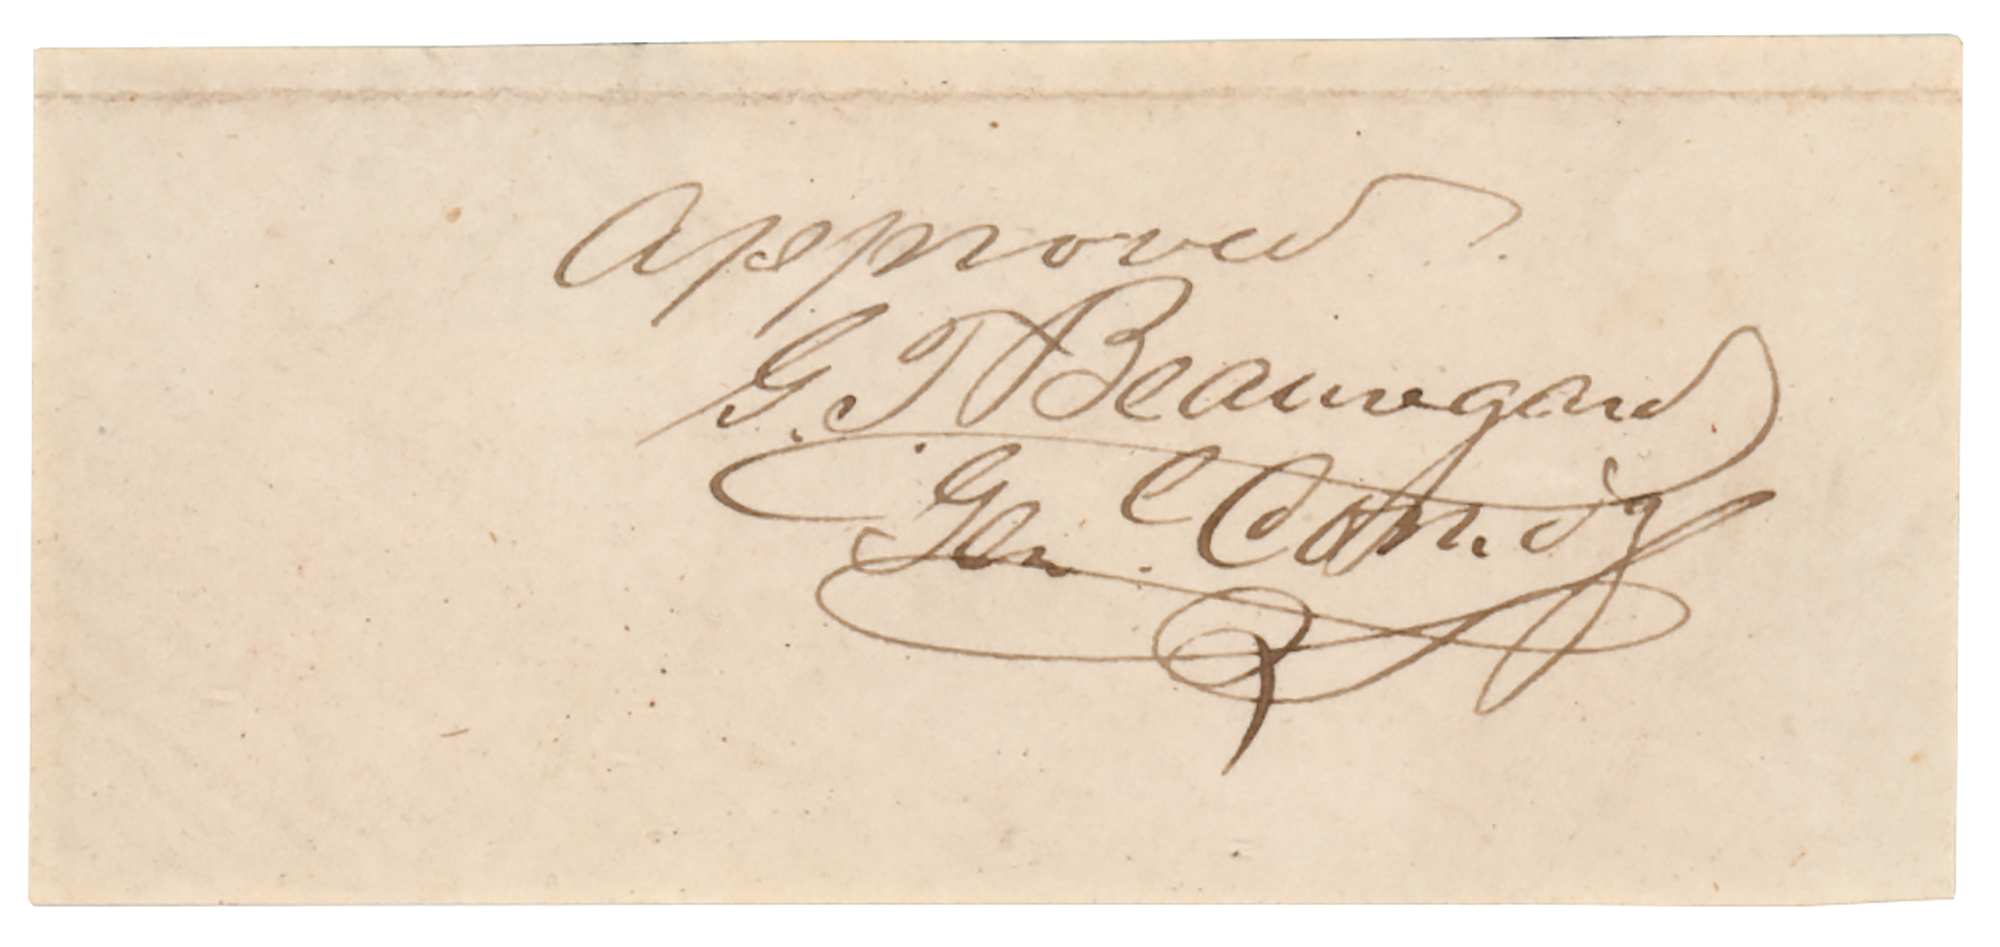 Approved.
G. T. Beauregard
Genl. Comdg